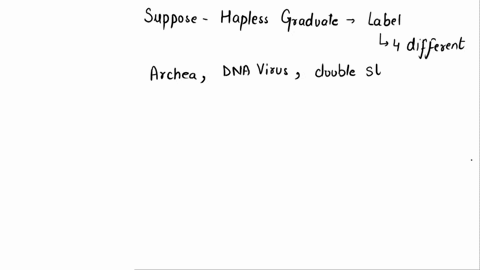 Suppose - Hapless Graduate → Label
↳ 4 different
Archea, DNA Virus, double sl